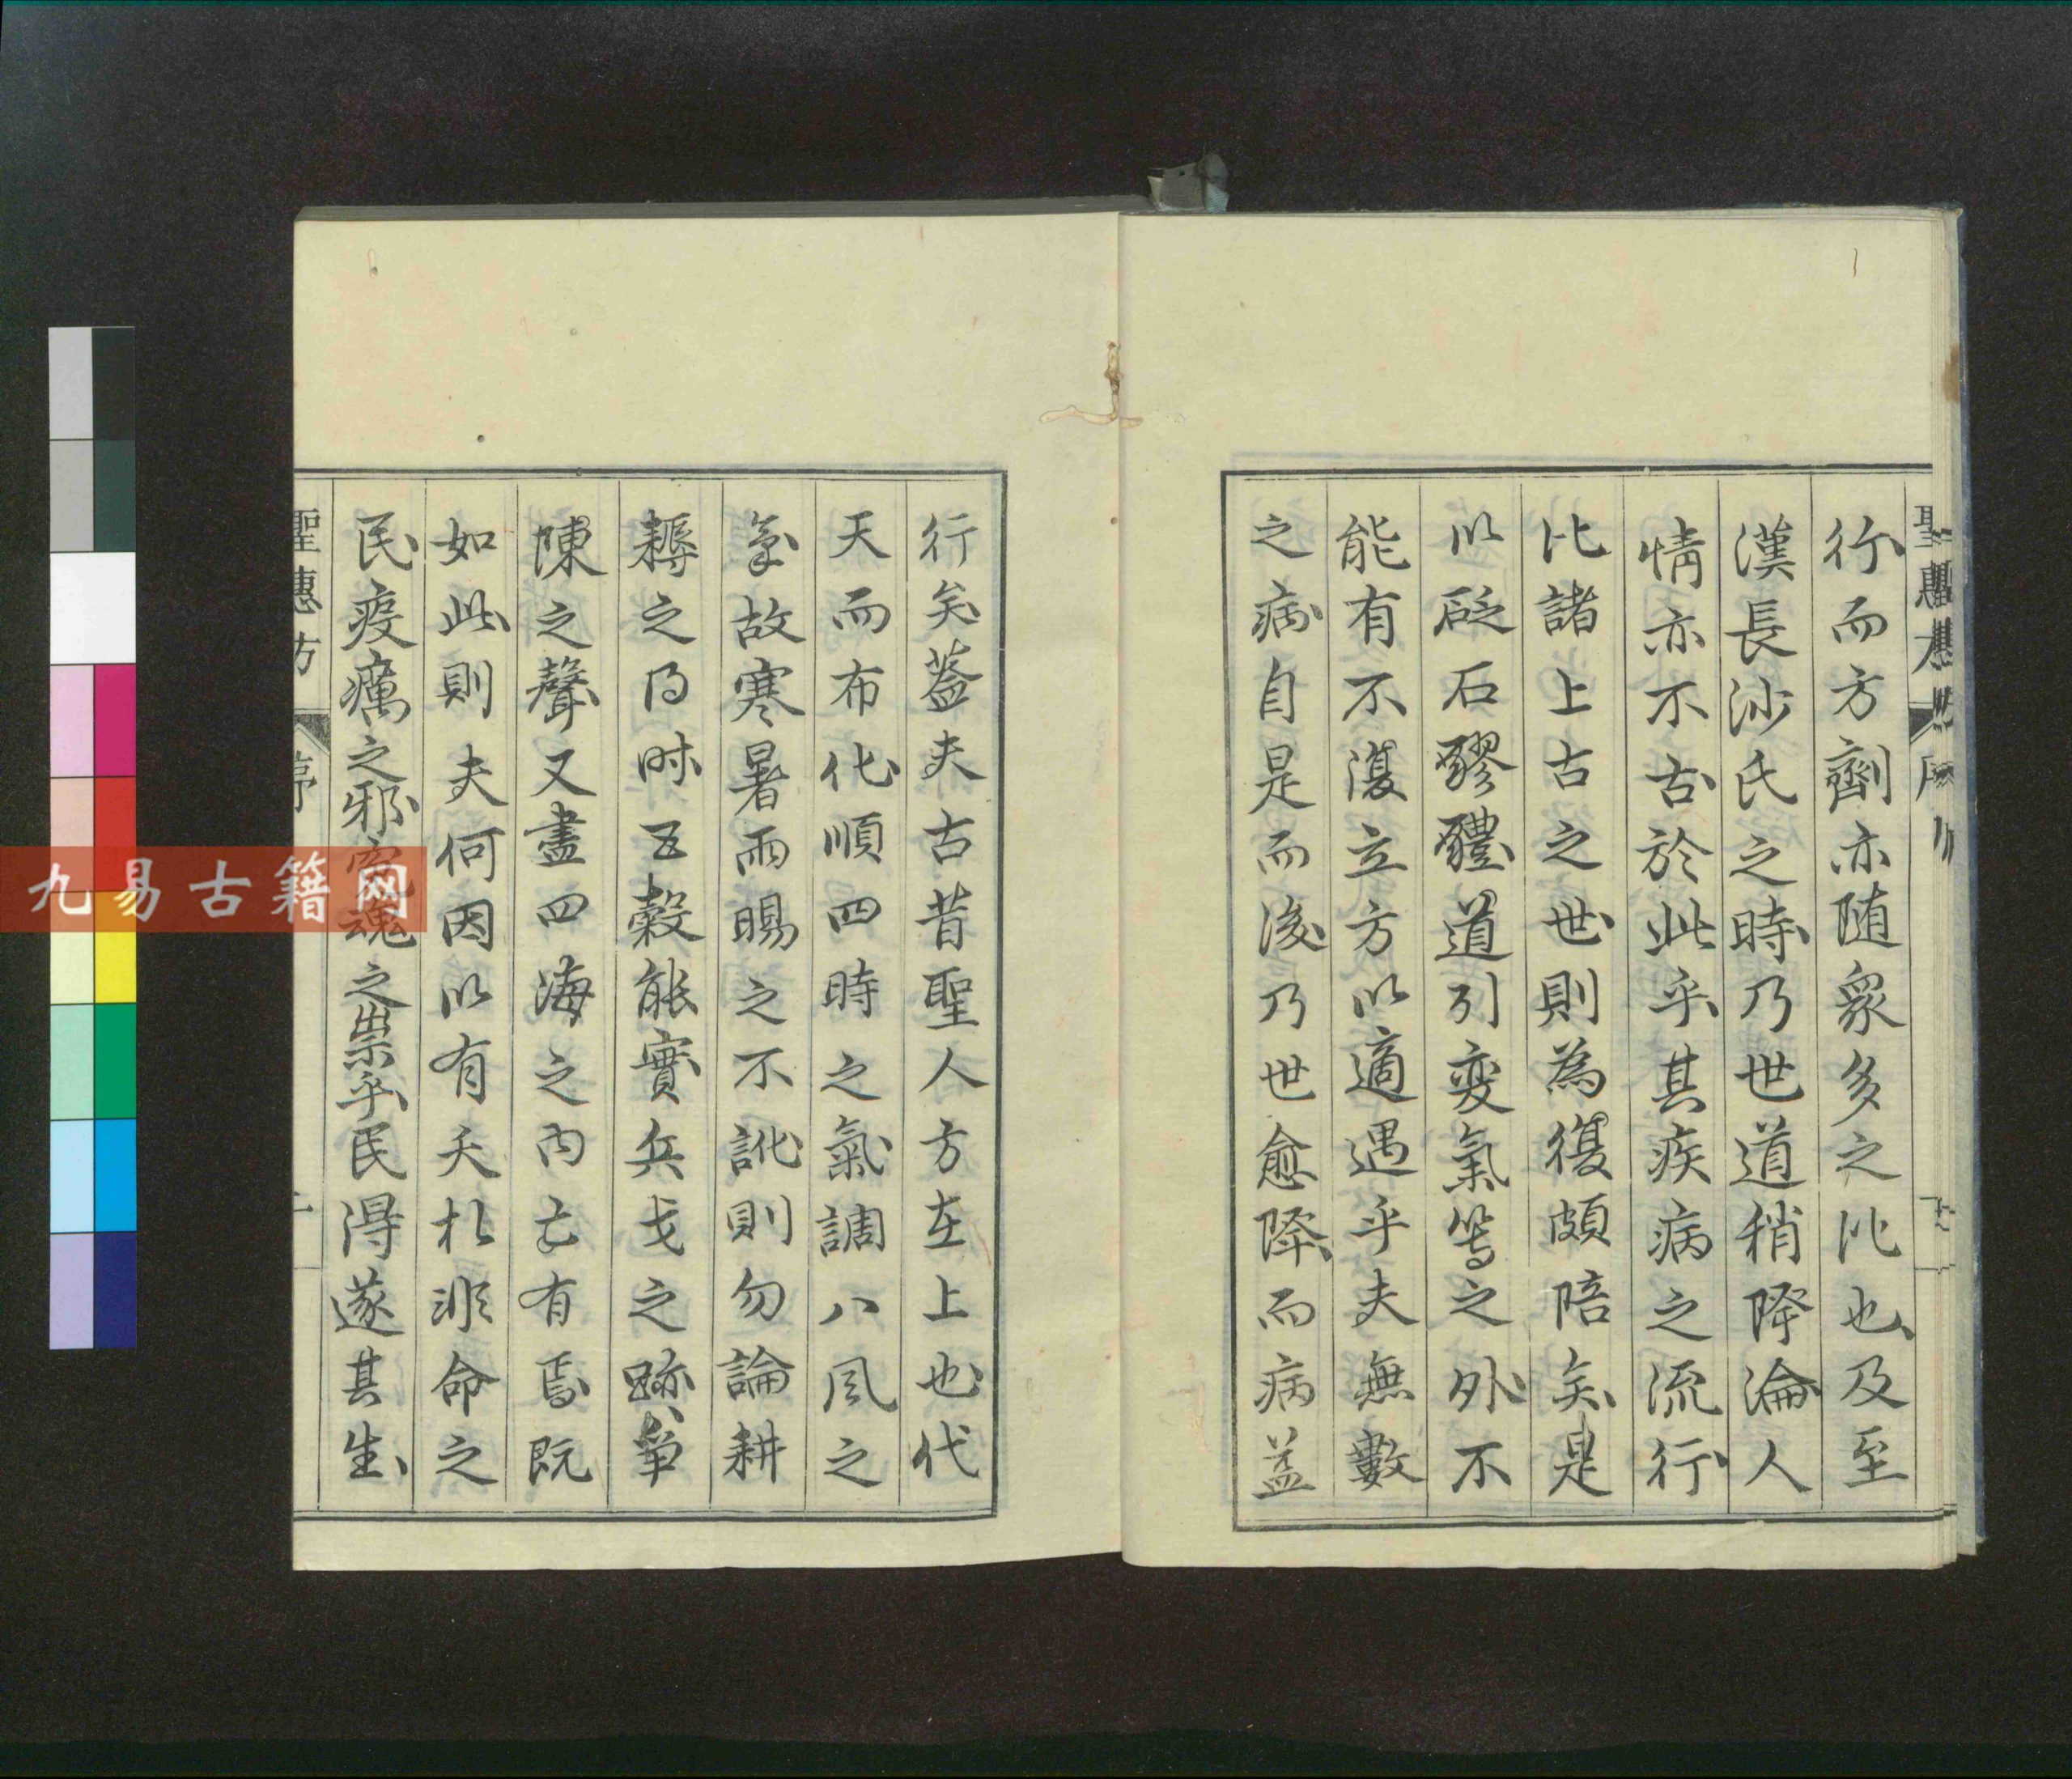 行而方劑亦随衆多之比也及至
漢長沙氏之時乃世道稍降淪人
情亦不古於此乎其疾病之流行
比諸上古之世則為復頗陪矣是
以砭石醪醴道引変氣等之外不
能有不復立方以適遇乎夫無數
之病自是而後乃世愈降而病益
行矣蓋夫古昔聖人方在上也代
天而布化順四時之氣調八风之
氣故寒暑雨暘之不訛則勿論耕
耨之得时五穀能實兵戈之跡爭
陳之聲又盡四海之内亡有焉既
如此則夫何因以有夭札非命之
民疫癘之邪冤魂之祟乎民得遂其生
聖惠方 序
九易古籍网